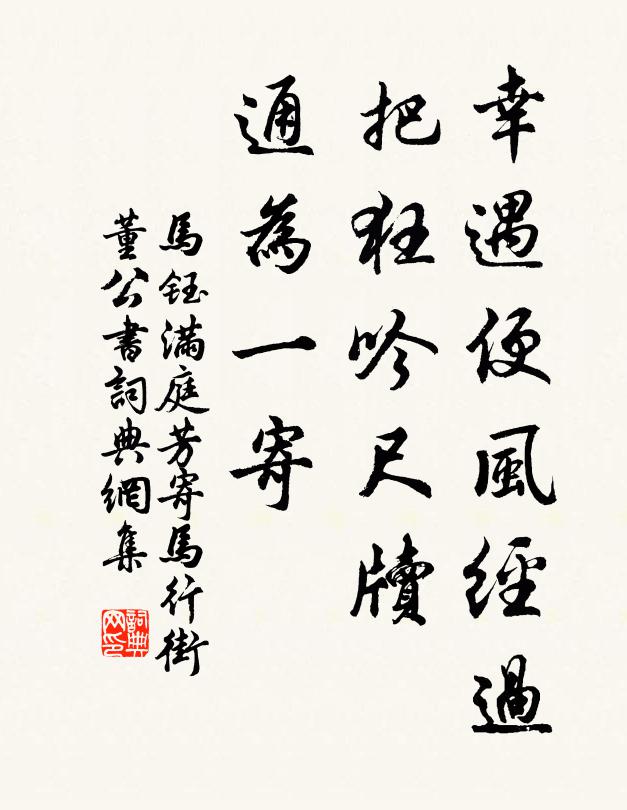 幸遇便風經過
把狂吟尺牘
通為一寄
馬鈺滿庭芳寄馬行街
董公書詞典網集
詞典网印